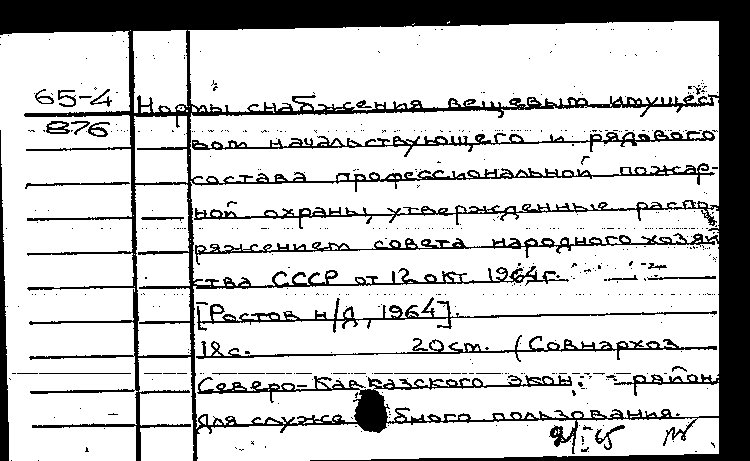 65-4
876
Нормы снабжения вещевым имущест
вом начальствующего и рядового
состава профессиональной пожар-
ной охраны, утвержденные распо-
ряжением совета народного хозяй
ства СССР от 12 окт. 1964г.
[Ростов н/Д, 1964].
18с. 20см. (Совнархоз
Северо-Кавказского экон. района
Для служебного пользования.